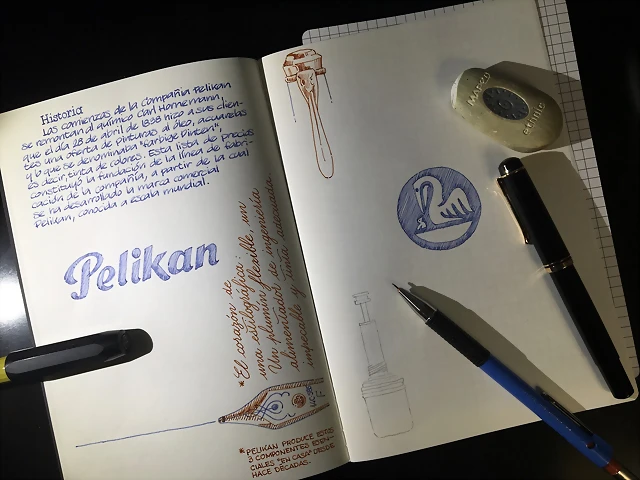 Historia
Los comienzos de la compañía Pelikan
se remontan al químico Carl Hornemann,
que el día 28 de abril de 1838 hizo a sus clien-
tes una oferta de pinturas al óleo, acuarelas
y lo que se denominaba "Farbige Tinten",
es decir, tinta de colores. Esta lista de precios
constituyó la fundación de la línea de fabri-
cación de la compañía, a partir de la cual
se ha desarrollado la marca comercial
Pelikan, conocida a escala mundial.
Pelikan
*El corazón de
una estilográfica:
un plumín flexible, un
alimentador de ingeniería
impecable y tinta adecuada.
*PELIKAN PRODUCE ESTOS
3 COMPONENTES ESEN-
CIALES "EN CASA" DESDE
HACE DÉCADAS.